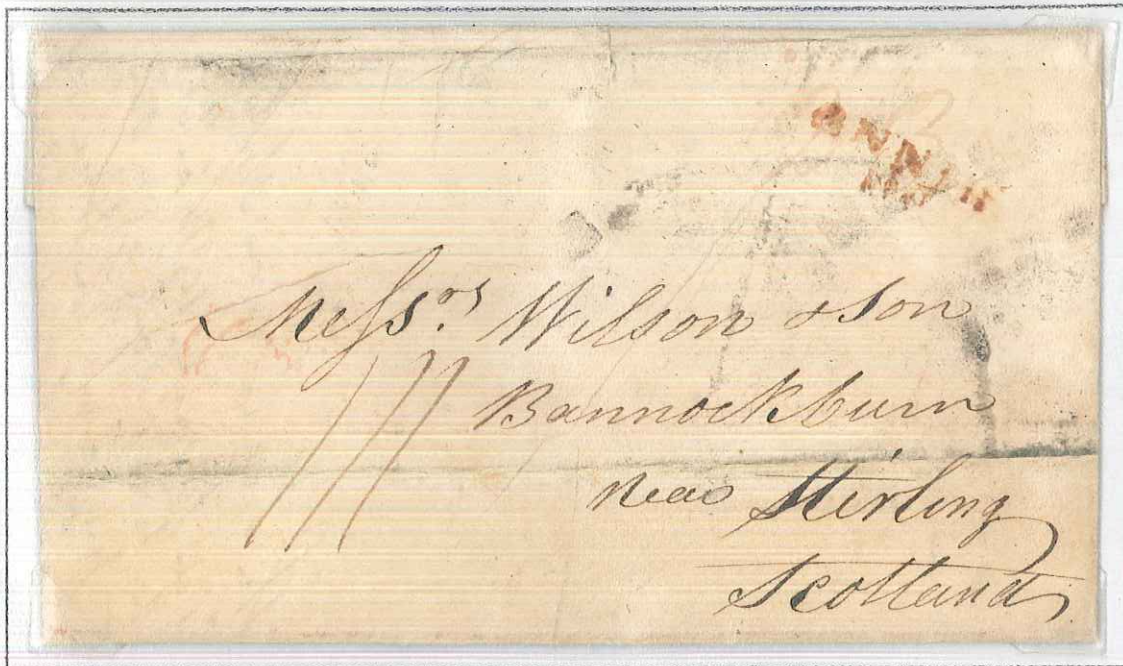 Messrs. Wilson & Son
Bannockburn
near Stirling
Scotland